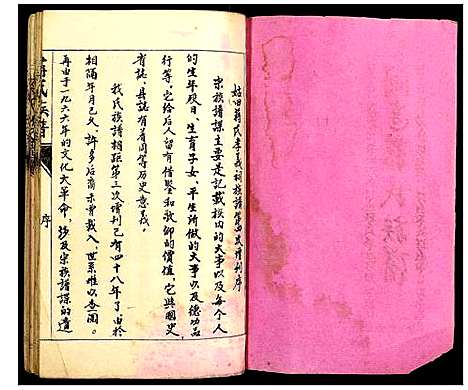 姑田蒋氏孝义祠族谱第四次增刊序
宗族谱谍主要是记载族内的大事以及每个人
的生年殁日、生育子女、平生所做的大事以及德功品
行等，它给后人留有借鉴和敬仰的价值，它与国史
有志、县志有着同等历史意义。
我氏族谱相距第三次增刊已有四十八年了由於
相隔年月已久、许多后裔未曾载入，世系难以查阅。
再由于一九六六年的文化大革命，涉及宗族谱谍的遗
氏族谱
序